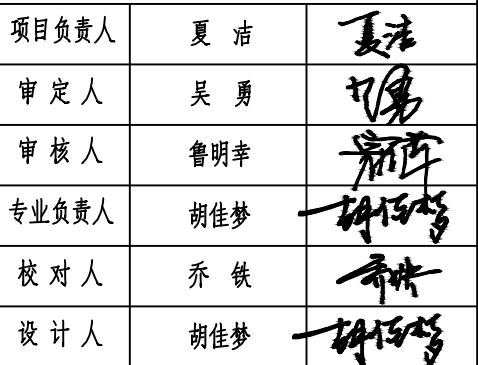 项目负责人 夏 洁 夏洁
审 定 人 吴 勇
审 核 人 鲁明幸
专业负责人 胡佳梦 胡佳梦
校 对 人 乔 铁 乔铁
设 计 人 胡佳梦 胡佳梦